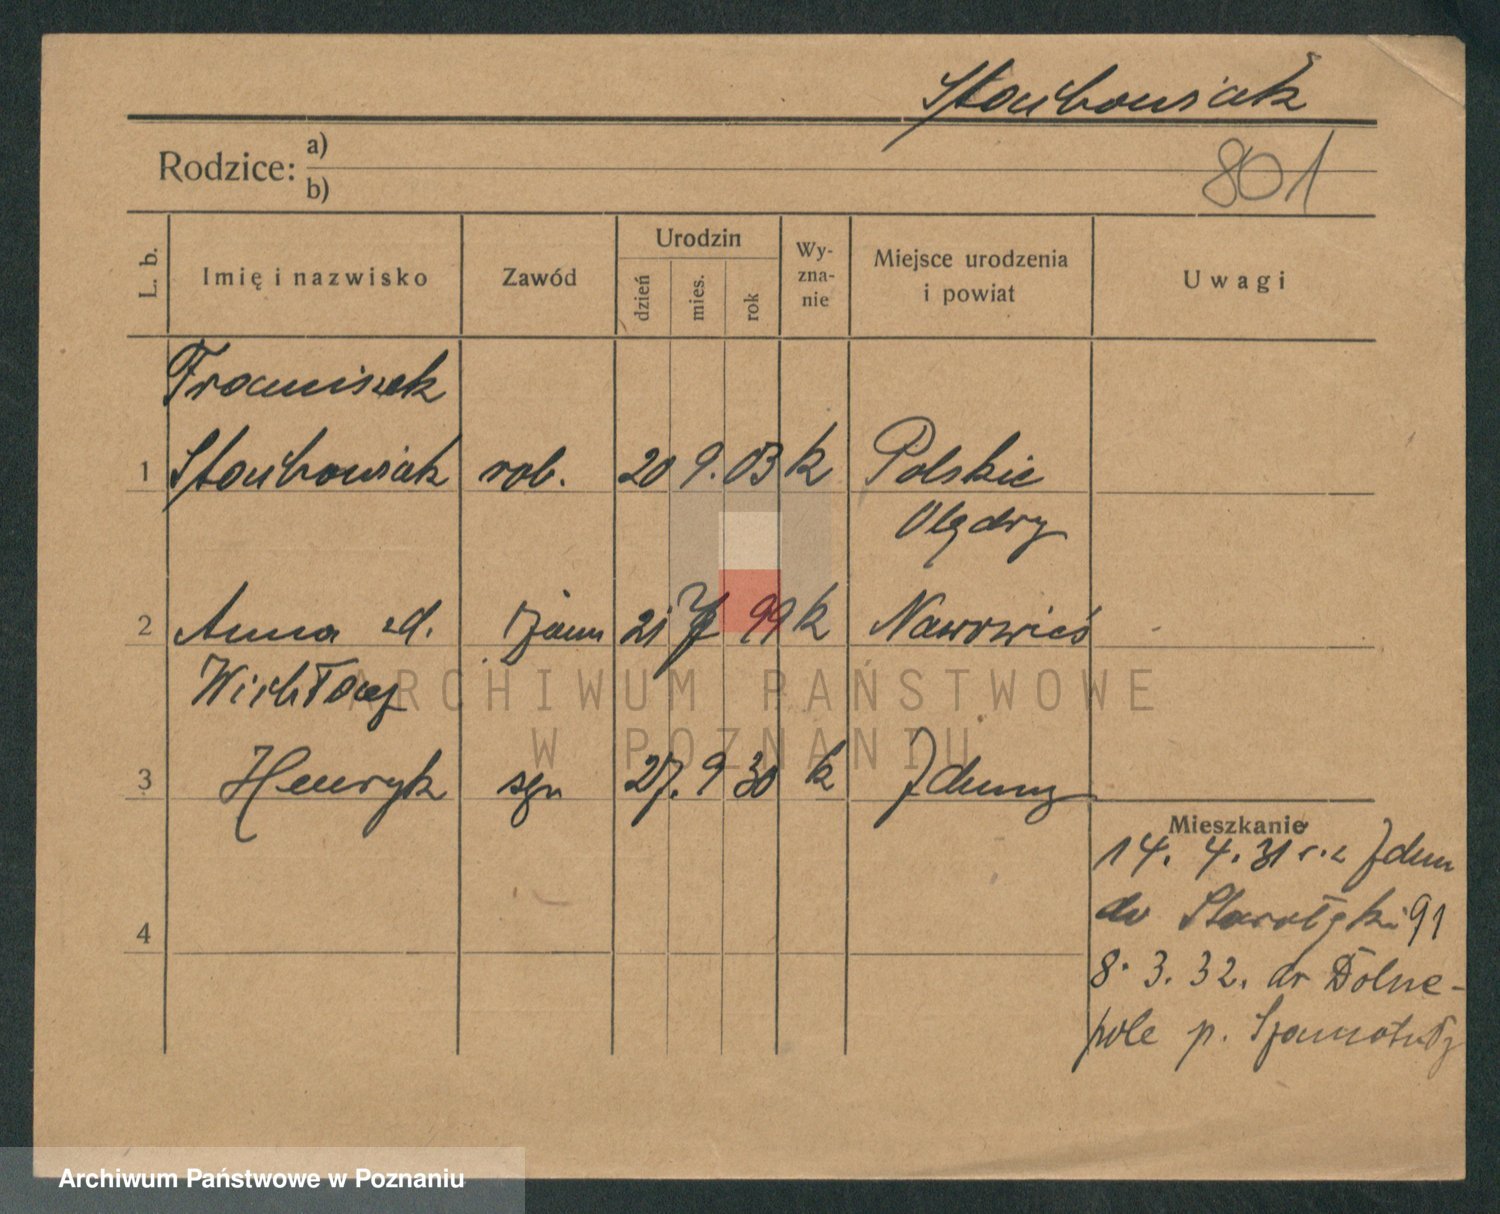 Skowbowiak
801
Rodzice:
a)
b)
L. b.
Imię i nazwisko
Zawód
Urodzin
dzień
mies.
rok
Wy-
zna-
nie
Miejsce urodzenia
i powiat
Uwagi
Franciszek
1 rob. 20 9. 03 k Polskie
Olędry
2 Anna zd. 21 99 k Nawowieś
3 Henryk syn 27. 9 30 k
Mieszkanie
14. 4. 31
do Starołęki 91
8. 3. 32. do Dolne-
pole p. Szamotuły
4
ARCHIWUM PAŃSTWOWE
W POZNANIU
Archiwum Państwowe w Poznaniu